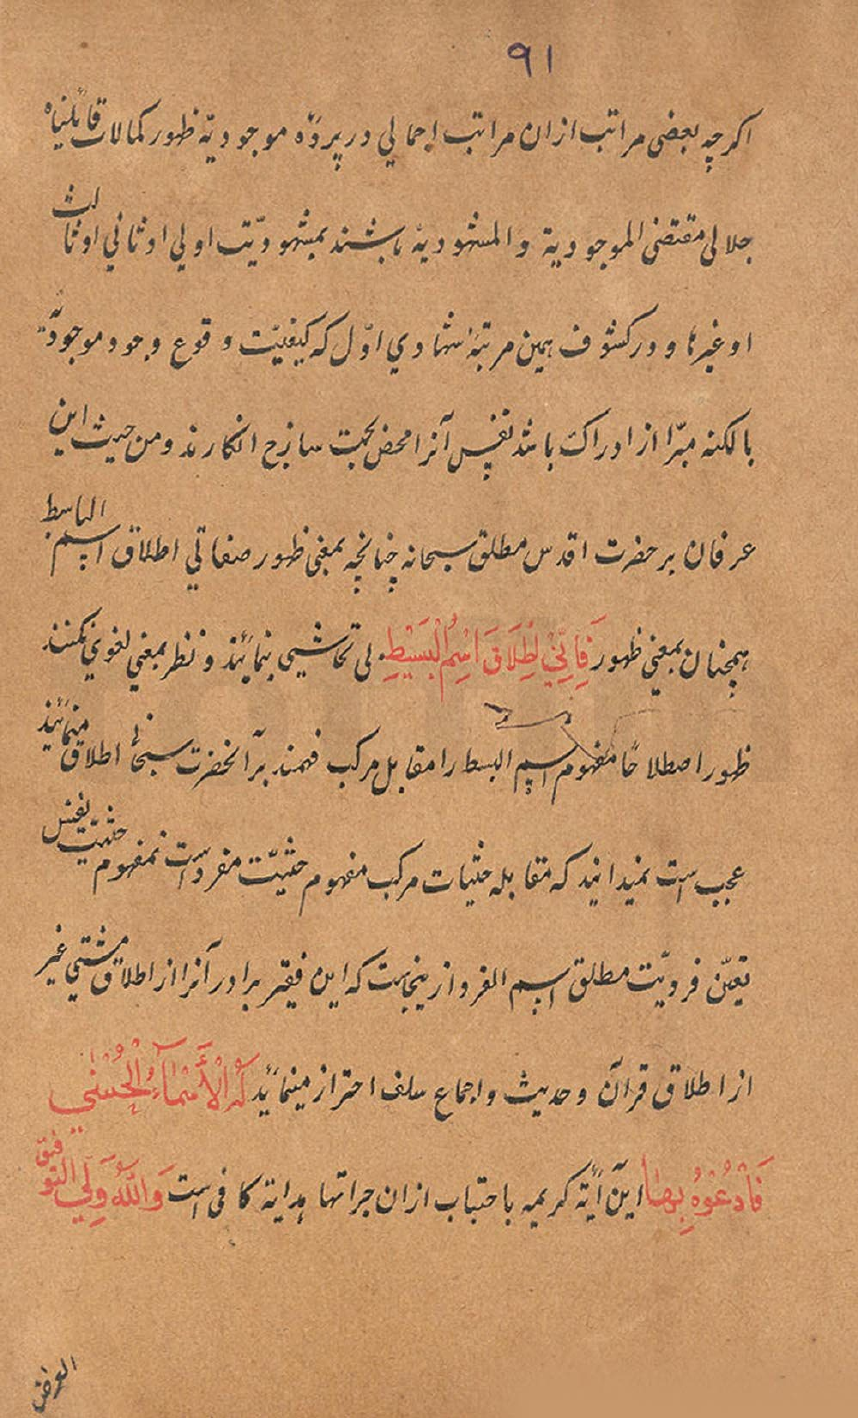 ۹۱
اکرچه بعضی مراتب ازان مراتب اجمالی در پردهٔ موجودیّه ظهور کمالات قائلیاه
جلالی مقتضی الموجودیة والمشهودیهٔ باشند بمشهودیّت اولی او ثانی او ثالث
او غیرها و در کشوف همین مرتبهٔ شهادی اوّل که کیفیّت وقوع وجود موجودیّه
بالکنه مبرّا از ادراک باشد نفس آنرا محض بحت سازج انکارند ومن حیث این
عرفان بر حضرت اقدس مطلق سبحانه چنانچه بمعنی ظهور صفاتی اطلاق اسم الباسط
همچنان بمعنی ظهور فَانِّیْ لِطْلَاقَ اِسْمُ الْبَسِیْطِ لی تحاشیی نمایند و نظر بمعنی لغوی نکنند
ظهور اصطلاحًا مفهوم اسم البسط را مقابل مرکب فهمند برآنحضرت سبحانی اطلاق مینمائید
عجب است نمیدانید که مقابله حثیات مرکب مفهوم حثیّت مفرد است نمفهوم حثیّت نفس
تعیّن فردیّت مطلق اسم الفرد ازینجاست که این فقیر برادر آنرا از اطلاق مشتی غیر
از اطلاق قرآن و حدیث و اجماع سلف احتراز مینماید لَهُ الْأَسْمَآءُ الْحُسْنٰی
فَادْعُوْهُ بِهَا این آیة کریمه باحتباب ازان جراتها هدایة کافی است وَاللّٰهُ وَلِیُّ التَّوفیق
العرض